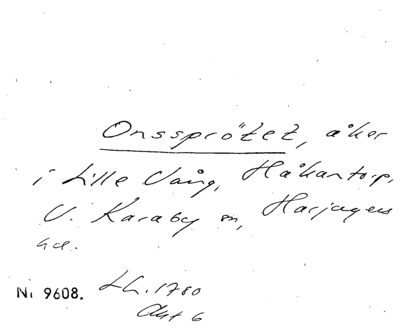 Onssprötet, åker
i Lille Vång, Håkantorp,
V. Karaby sn, Harjagers
hd.
Nr 9608. LH. 1780
Akt 6